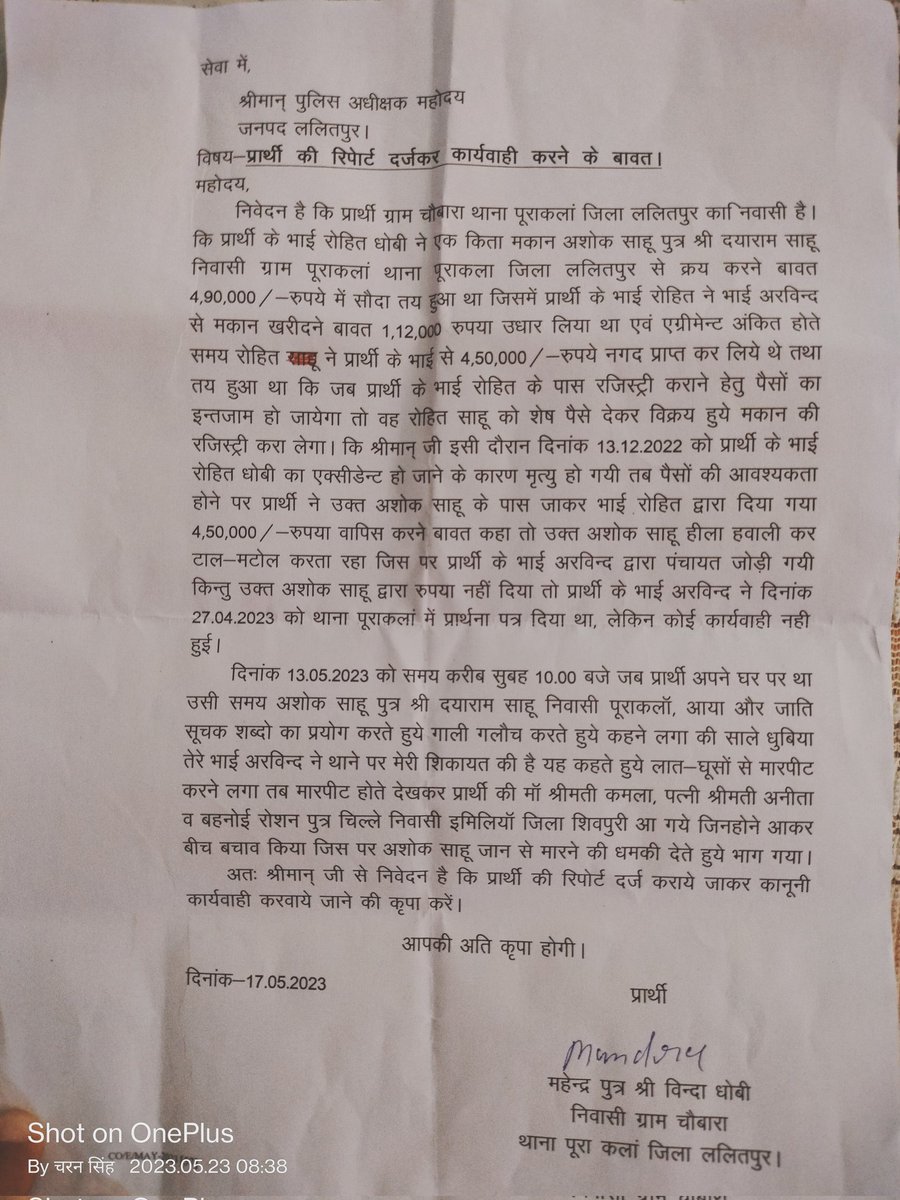 सेवा में,
श्रीमान् पुलिस अधीक्षक महोदय
जनपद ललितपुर।
विषय–प्रार्थी की रिपोर्ट दर्जकर कार्यवाही करने के बावत।
महोदय,
निवेदन है कि प्रार्थी ग्राम चौबारा थाना पूराकलां जिला ललितपुर का निवासी है।
कि प्रार्थी के भाई रोहित धोबी ने एक किता मकान अशोक साहू पुत्र श्री दयाराम साहू
निवासी ग्राम पूराकलां थाना पूराकला जिला ललितपुर से क्रय करने बावत
4,90,000/–रुपये में सौदा तय हुआ था जिसमें प्रार्थी के भाई रोहित ने भाई अरविन्द
से मकान खरीदने बावत 1,12,000 रुपया उधार लिया था एवं एग्रीमेन्ट अंकित होते
समय रोहित साहू ने प्रार्थी के भाई से 4,50,000/–रुपये नगद प्राप्त कर लिये थे तथा
तय हुआ था कि जब प्रार्थी के भाई रोहित के पास रजिस्ट्री कराने हेतु पैसों का
इन्तजाम हो जायेगा तो वह रोहित साहू को शेष पैसे देकर विक्रय हुये मकान की
रजिस्ट्री करा लेगा। कि श्रीमान् जी इसी दौरान दिनांक 13.12.2022 को प्रार्थी के भाई
रोहित धोबी का एक्सीडेन्ट हो जाने के कारण मृत्यु हो गयी तब पैसों की आवश्यकता
होने पर प्रार्थी ने उक्त अशोक साहू के पास जाकर भाई रोहित द्वारा दिया गया
4,50,000/–रुपया वापिस करने बावत कहा तो उक्त अशोक साहू हीला हवाली कर
टाल–मटोल करता रहा जिस पर प्रार्थी के भाई अरविन्द द्वारा पंचायत जोड़ी गयी
किन्तु उक्त अशोक साहू द्वारा रुपया नहीं दिया तो प्रार्थी के भाई अरविन्द ने दिनांक
27.04.2023 को थाना पूराकलां में प्रार्थना पत्र दिया था, लेकिन कोई कार्यवाही नही
हुई।
दिनांक 13.05.2023 को समय करीब सुबह 10.00 बजे जब प्रार्थी अपने घर पर था
उसी समय अशोक साहू पुत्र श्री दयाराम साहू निवासी पूराकलॉ, आया और जाति
सूचक शब्दो का प्रयोग करते हुये गाली गलौच करते हुये कहने लगा की साले धुबिया
तेरे भाई अरविन्द ने थाने पर मेरी शिकायत की है यह कहते हुये लात–घूसों से मारपीट
करने लगा तब मारपीट होते देखकर प्रार्थी की मॉ श्रीमती कमला, पत्नी श्रीमती अनीता
व बहनोई रोशन पुत्र चिल्ले निवासी इमिलियॉ जिला शिवपुरी आ गये जिनहोने आकर
बीच बचाव किया जिस पर अशोक साहू जान से मारने की धमकी देते हुये भाग गया।
अतः श्रीमान् जी से निवेदन है कि प्रार्थी की रिपोर्ट दर्ज कराये जाकर कानूनी
कार्यवाही करवाये जाने की कृपा करें।
आपकी अति कृपा होगी।
दिनांक–17.05.2023
प्रार्थी
महेन्द्र पुत्र श्री विन्दा धोबी
निवासी ग्राम चौबारा
थाना पूरा कलां जिला ललितपुर।
Shot on OnePlus
By चरन सिंह 2023.05.23 08:38